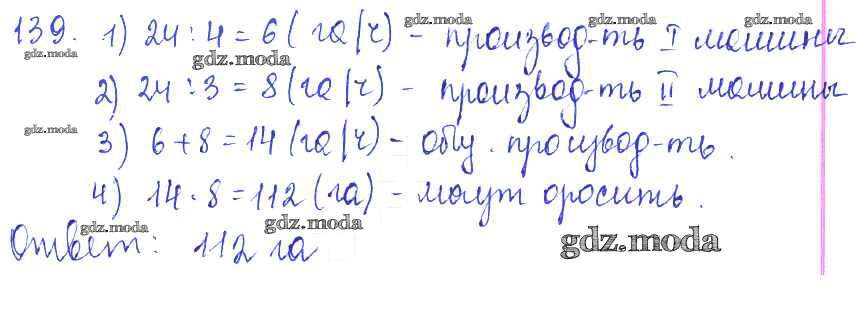 139. 1) 24 : 4 = 6 (га/ч) - производ-ть I машины
2) 24 : 3 = 8 (га/ч) - производ-ть II машины
3) 6 + 8 = 14 (га/ч) - общ. производ-ть.
4) 14 · 8 = 112 (га) - могут оросить.
Ответ: 112 га
gdz.moda
gdz.moda
gdz.moda
gdz.moda
gdz.moda
gdz.moda
gdz.moda
gdz.moda